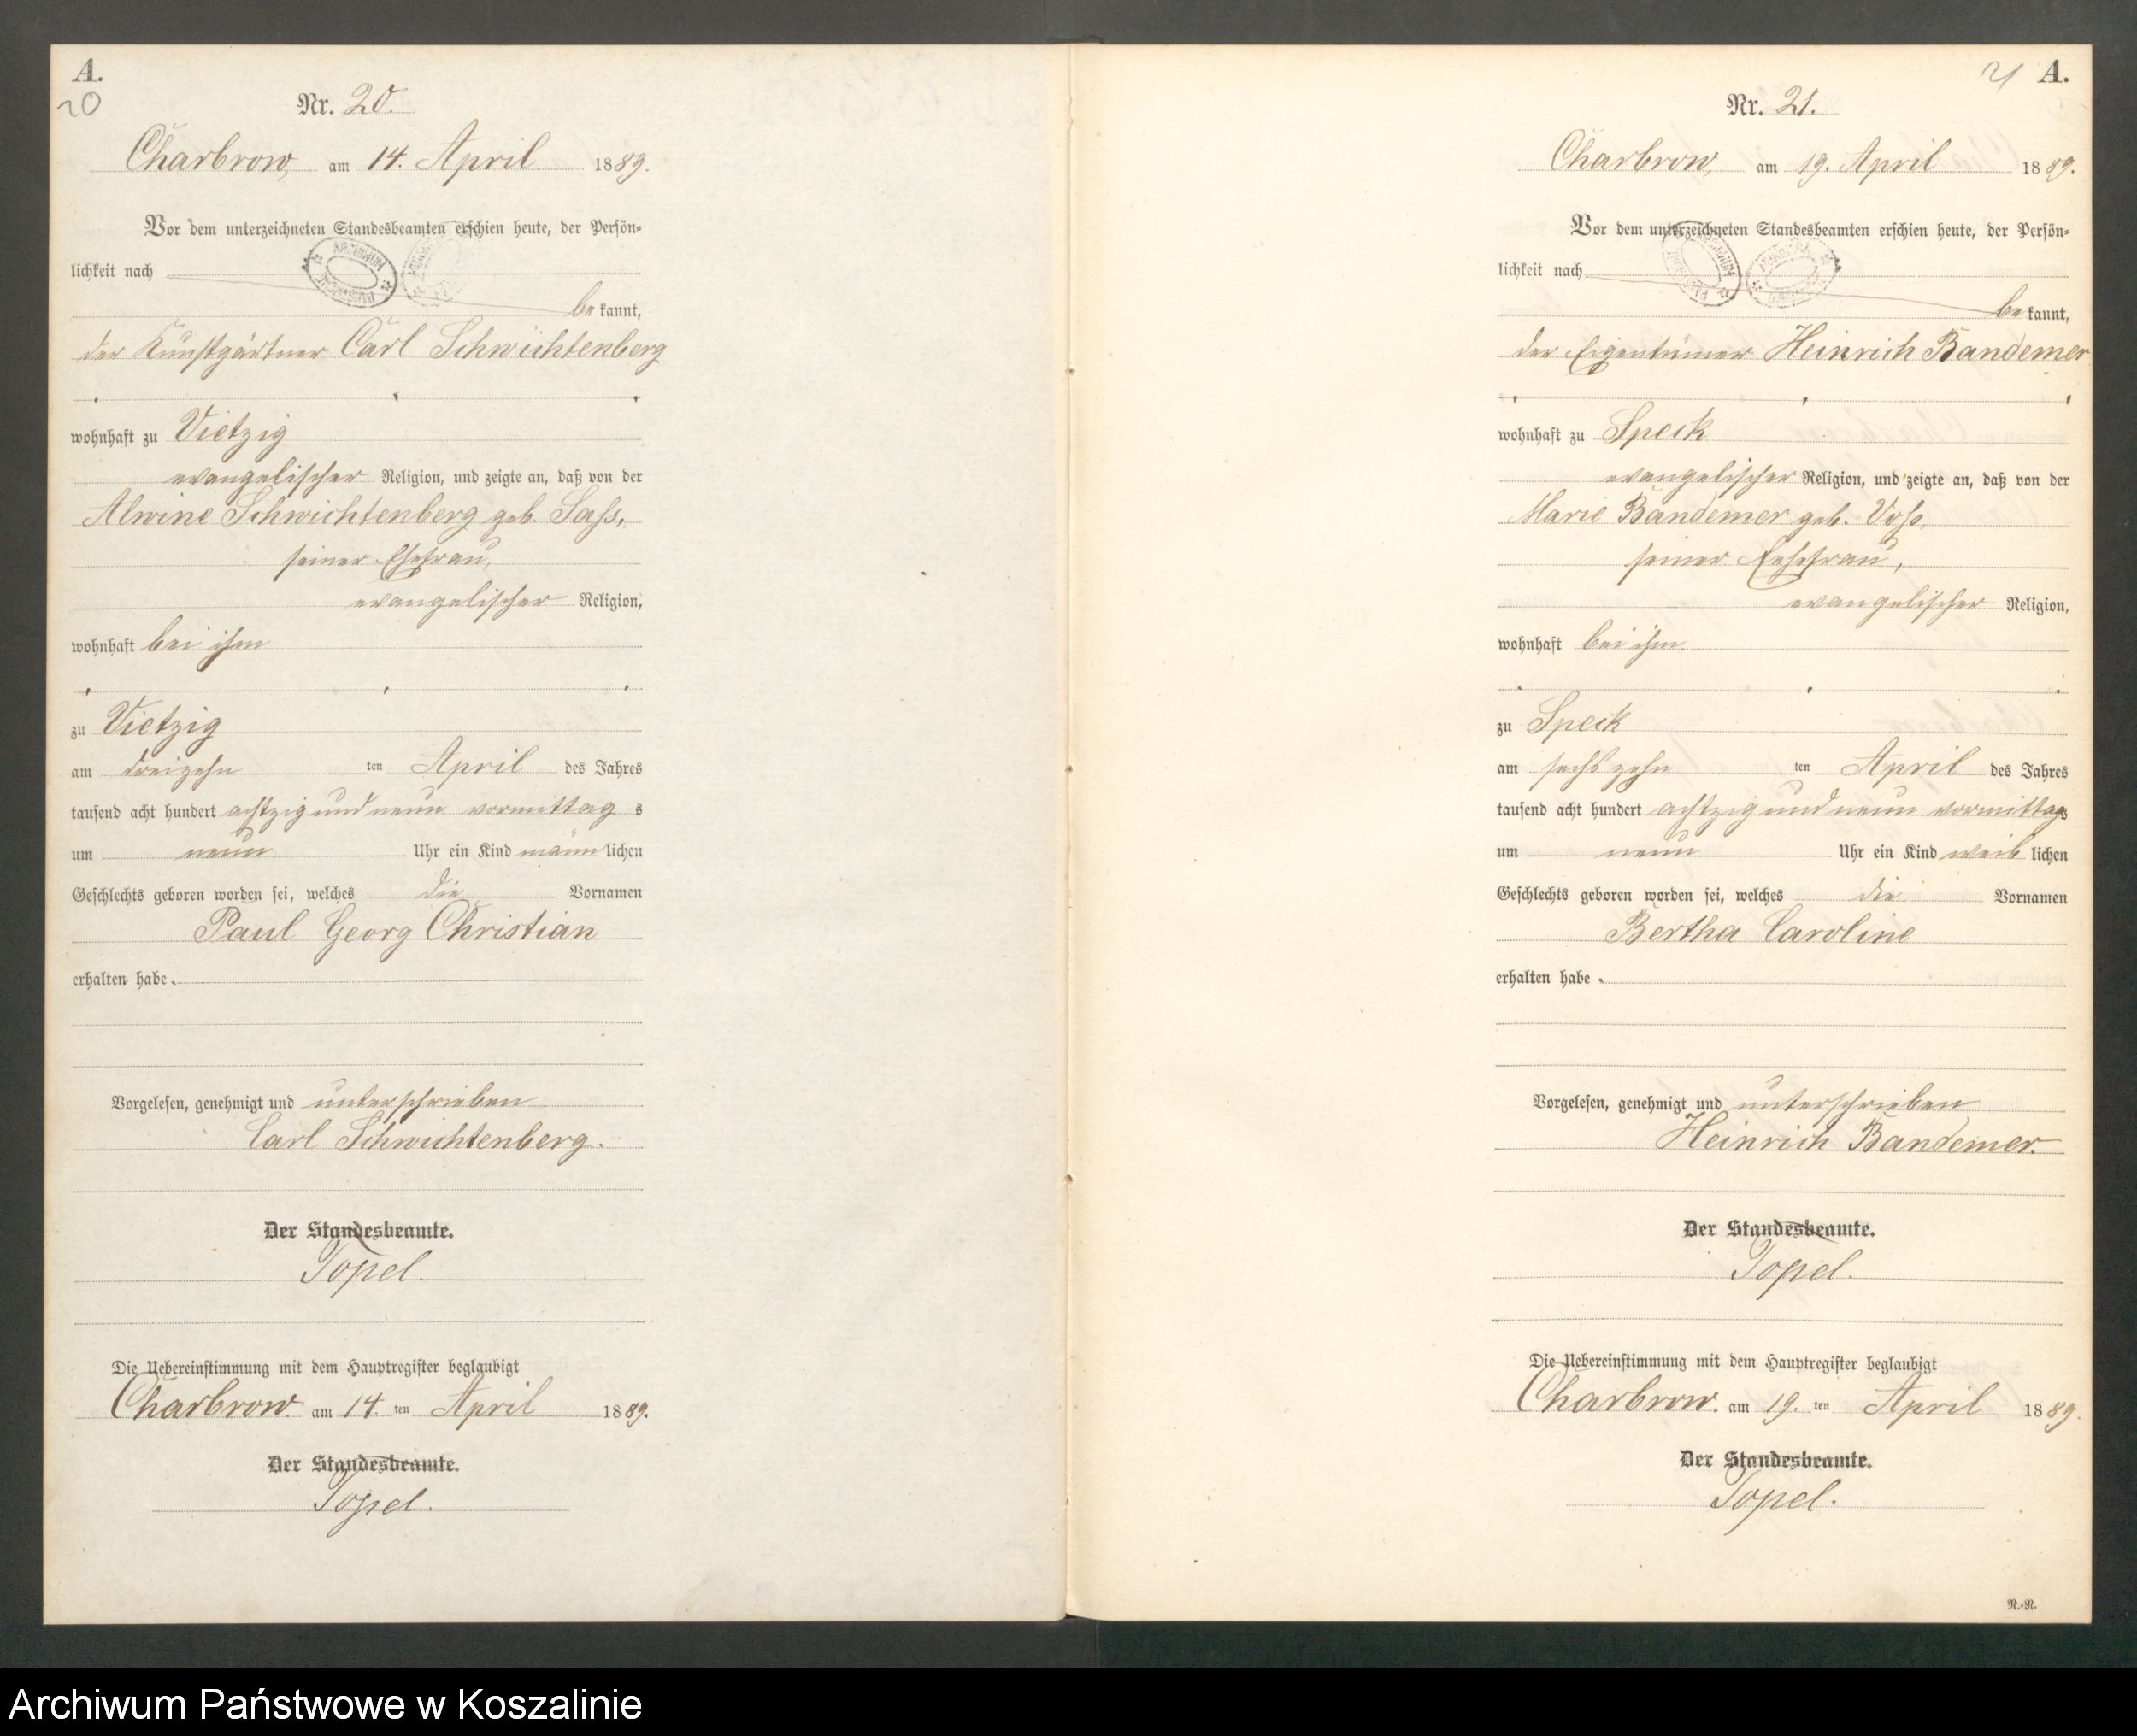 A.
20
Nr. 20.
Charbrow, am 14. April 1889.
Vor dem unterzeichneten Standesbeamten erschien heute, der Persön-
lichkeit nach
be kannt,
der Kunstgärtner Carl Schwichtenberg
wohnhaft zu Vietzig
evangelischer Religion, und zeigte an, daß von der
Alwine Schwichtenberg geb. Sass,
seiner Ehefrau,
evangelischer Religion,
wohnhaft bei ihm
zu Vietzig
am dreizehn ten April des Jahres
tausend acht hundert achtzig und neun vormittag s
um neun Uhr ein Kind männ lichen
Geschlechts geboren worden sei, welches die Vornamen
Paul Georg Christian
erhalten habe.
Vorgelesen, genehmigt und unterschrieben
Carl Schwichtenberg.
Der Standesbeamte.
Topel.
Die Uebereinstimmung mit dem Hauptregister beglaubigt
Charbrow. am 14. ten April 1889.
Der Standesbeamte.
Topel.
21 A.
Nr. 21.
Charbrow, am 19. April 1889.
Vor dem unterzeichneten Standesbeamten erschien heute, der Persön-
lichkeit nach
be kannt,
der Eigentümer Heinrich Bandemer
wohnhaft zu Speck
evangelischer Religion, und zeigte an, daß von der
Marie Bandemer geb. Voss,
seiner Ehefrau,
evangelischer Religion,
wohnhaft bei ihm
zu Speck
am sechszehn ten April des Jahres
tausend acht hundert achtzig und neun vormittags
um neun Uhr ein Kind weib lichen
Geschlechts geboren worden sei, welches die Vornamen
Bertha Caroline
erhalten habe.
Vorgelesen, genehmigt und unterschrieben
Heinrich Bandemer.
Der Standesbeamte.
Topel.
Die Uebereinstimmung mit dem Hauptregister beglaubigt
Charbrow. am 19. ten April 1889.
Der Standesbeamte.
Topel.
R.-R.
Archiwum Państwowe w Koszalinie